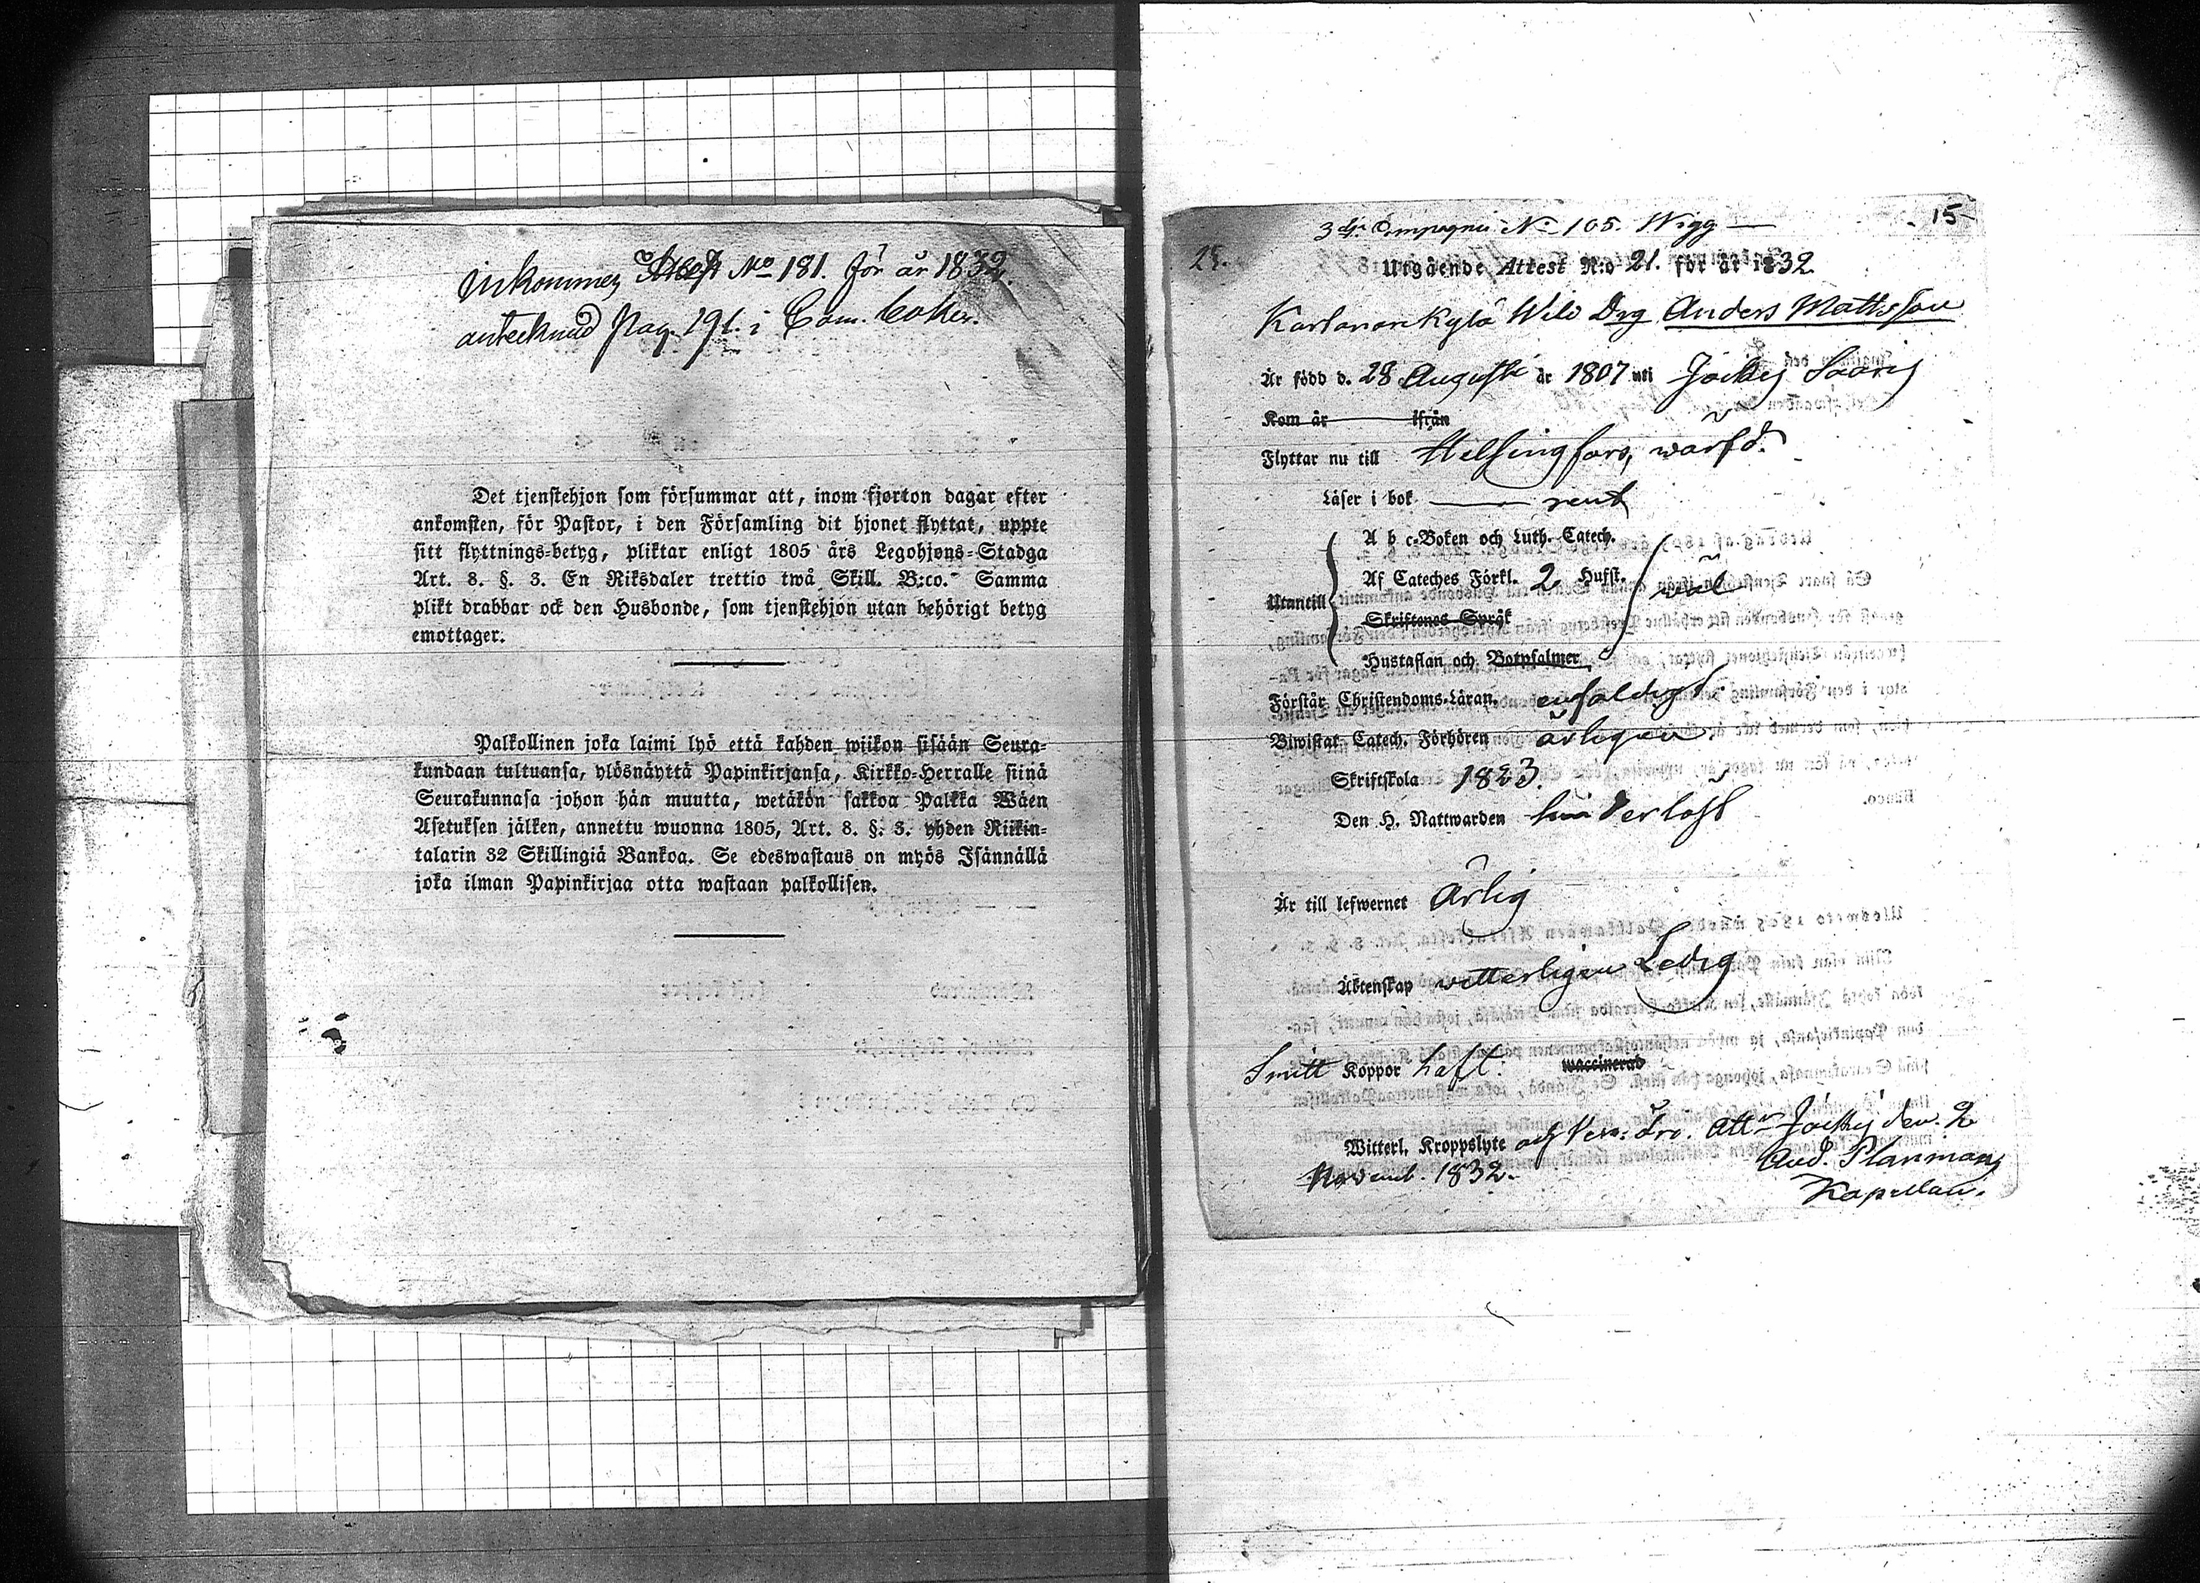 Inkommen Attest No 181. för år 1832.
antecknad Pag. 191. i Com. boken.
Det tjenstehjon som försummar att, inom fjorton dagar efter
ankomsten, för Pastor, i den Församling dit hjonet flyttat, uppte
sitt flyttnings-betyg, pliktar enligt 1805 års Legohjons-Stadga
Art. 8. §. 3. En Riksdaler trettio twå Skill. B:co. Samma
plikt drabbar ock den Husbonde, som tjenstehjon utan behörigt betyg
emottager.
Palkollinen joka laimi lyö että kahden wiikon sisään Seura-
kundaan tultuansa, ylösnäyttä Papinkirjansa, Kirkko-Herralle siinä
Seurakunnasa johon hän muutta, wetäkön sakkoa Palkka Wäen
Asetuksen jälken, annettu wuonna 1805, Art. 8. §. 3. yhden Riikin-
talarin 32 Skillingiä Bankoa. Se edeswastaus on myös Isännällä
joka ilman Papinkirjaa otta wastaan palkollisen.
15
3dje Compagnie No 105. Wigg
Utgående Attest N:o 21. för år 1832.
Drg Anders Mattsson
Är född d. 28 Augusti år 1807 uti Jockis
Kom år ifrån
Flyttar nu till Helsingfors, wärfd.
Läser i bok rent
A b c-Boken och Luth. Catech.
Af Cateches Förkl. 2 Hufst.
Utantill wäl
Skriftenes Språk
Hustaflan och Botpsalmer
Förstår Christendoms-Läran. enfaldigt.
Biwistat Catech. Förhören årligen.
Skriftskola 1823.
Den H. Nattwarden hinderlöst
Är till lefwernet Ärlig
Äktenskap vetterligen Ledig
Smitt Koppor haft. waccinerad
Witterl. Kroppslyte Jockis den 2
Novemb. 1832. And. Planman
Kapellan.